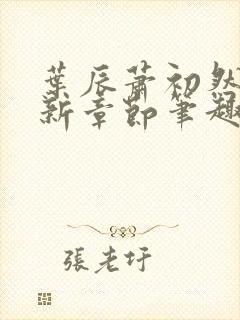 葉辰蕭初然
新章節筆趣
張老圩